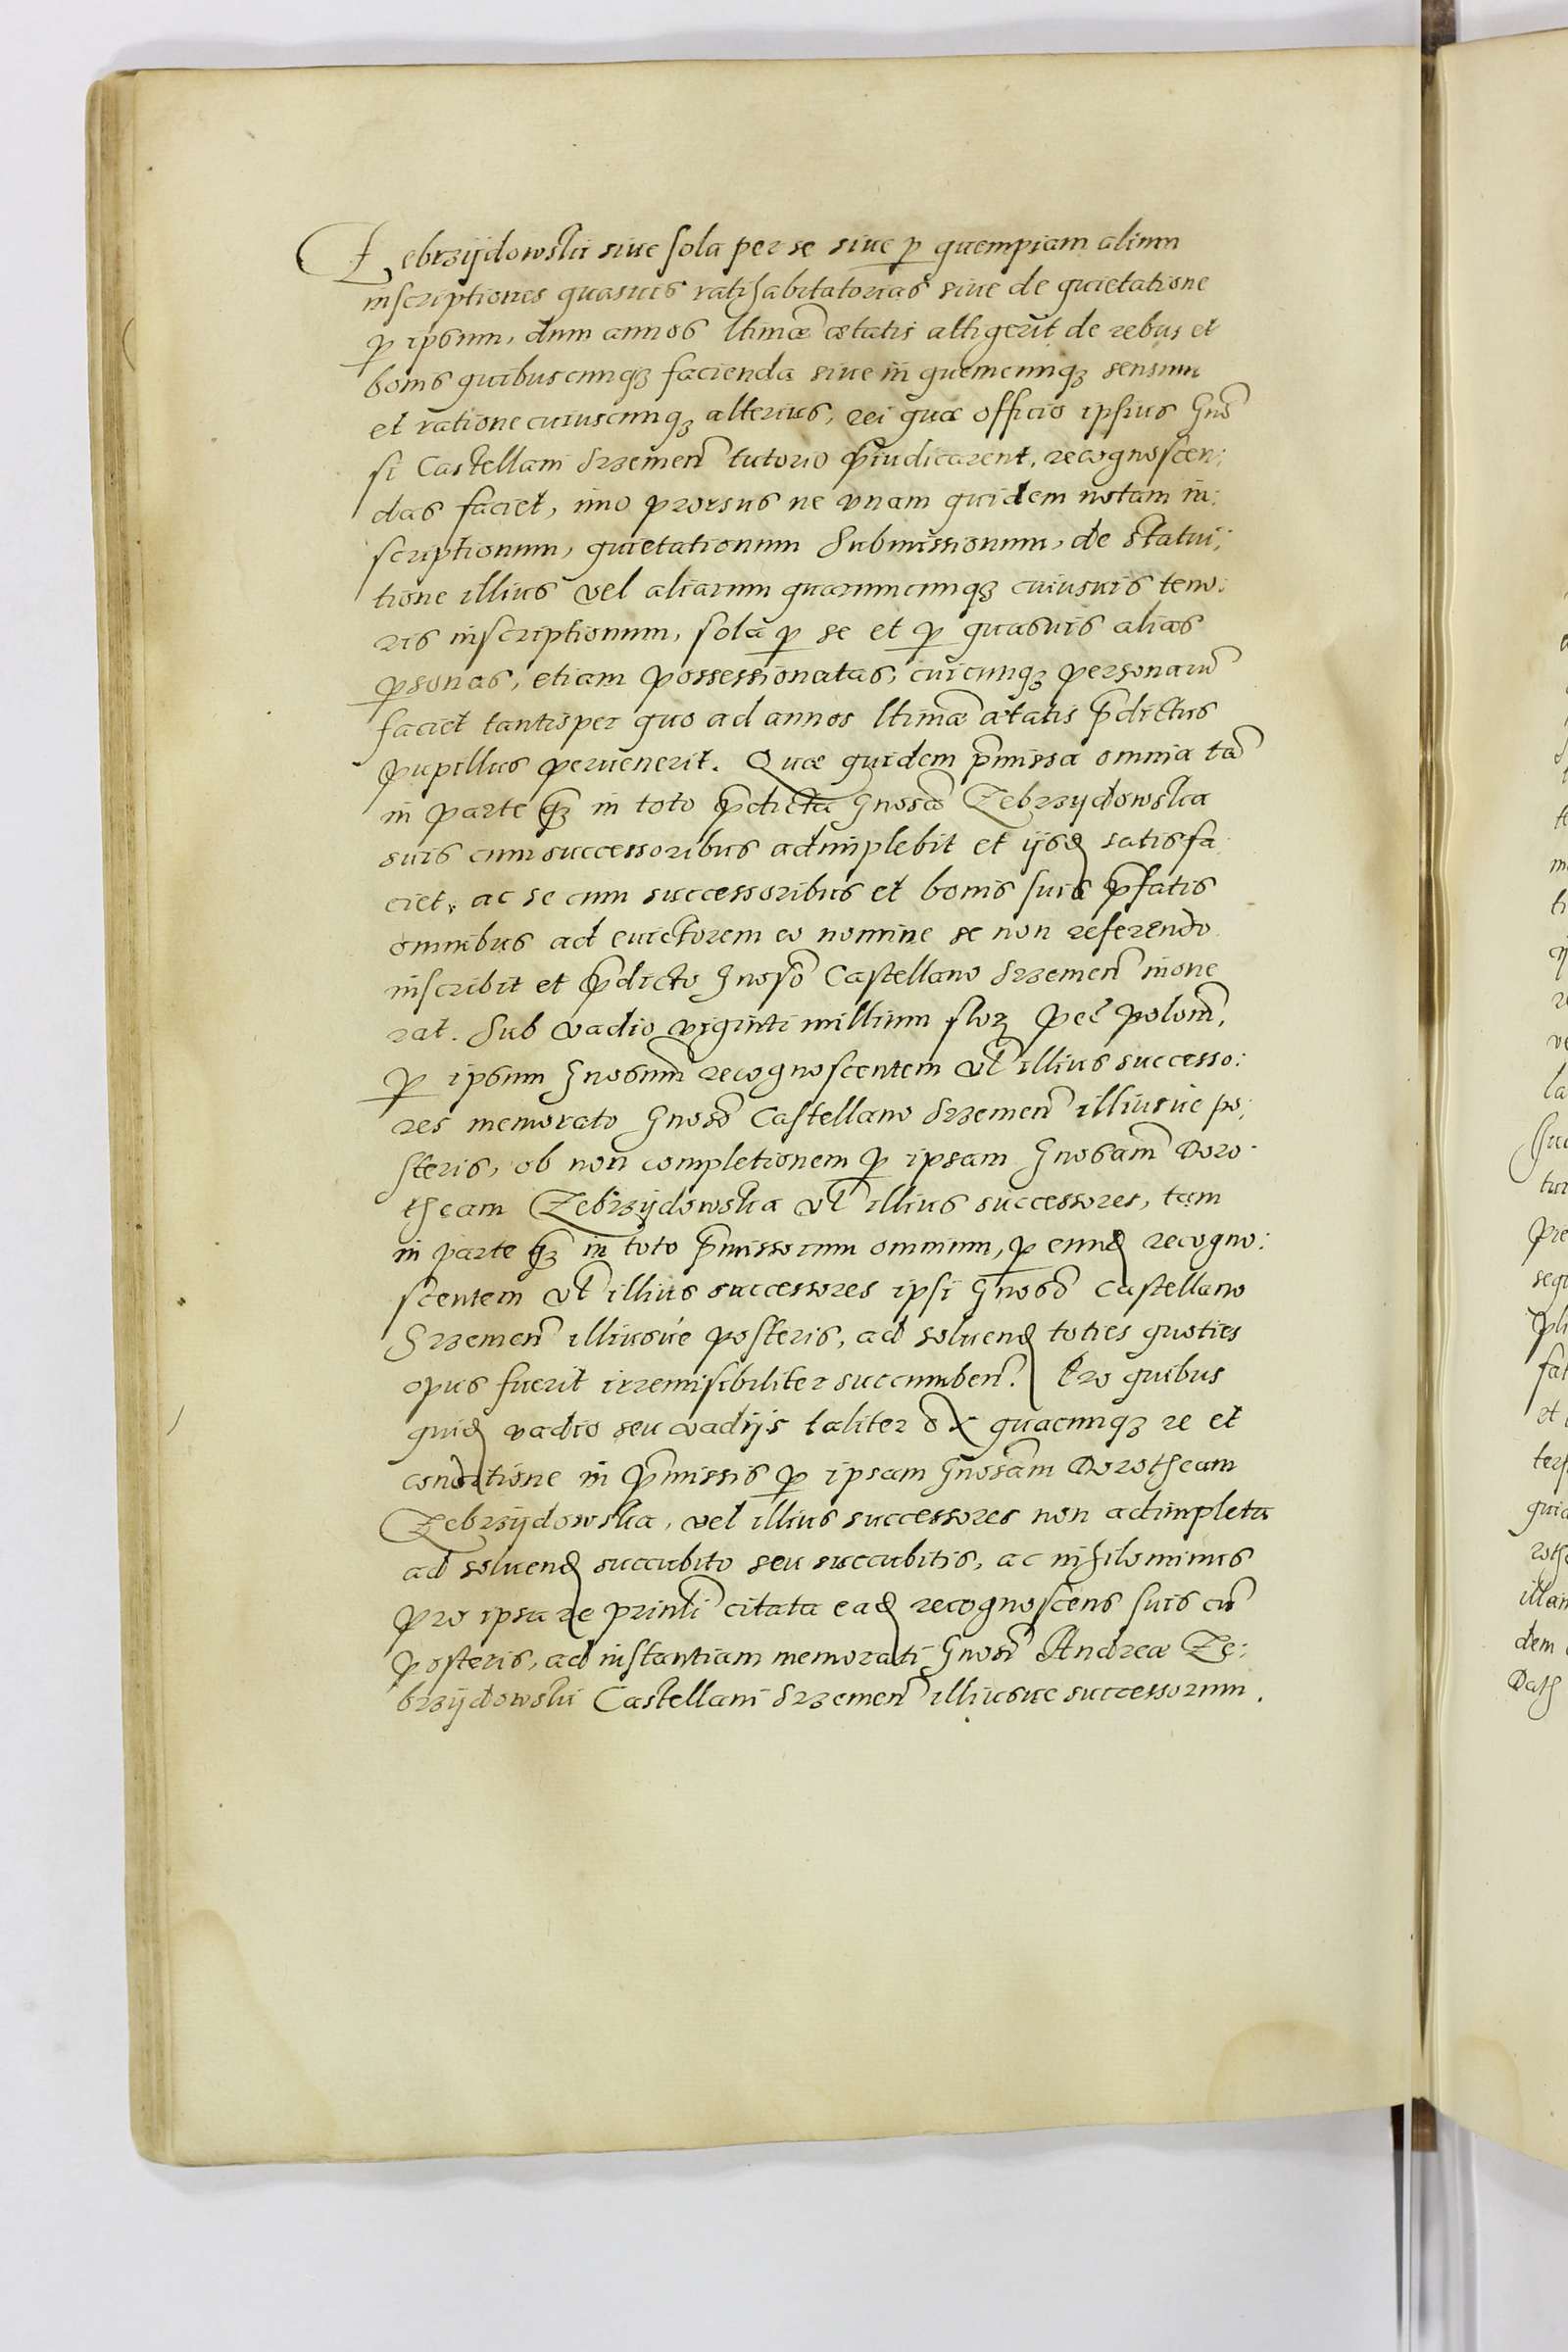 Zebrzÿdowskü siue sola per se siue ꝑ quempiam alium
inscriptiones quasuis ratihabitatorias siue de quietatione
ꝑ ipsum, dum annos ltimæ ætatis attigerit de rebus et
bonis quibuscunqȝ facienda siue in quemcunqȝ sensum
et ratione cuiuscunqȝ alterius, rei quæ officio ipsius Gno͠
si Castellani Srzemen͠ tutorio p͠iudicarent, recognoscen:
das faciet, imo prorsus ne vnam quidem notam in:
scriptionum, quietationum Submissionum, de statui:
tione illius vel aliarum quarumcunqȝ cuiusuis teno:
ris inscriptionum, sola ꝑ se et ꝑ quasuis alias
ꝑsonas, etiam possessionatas, cuicunqȝ personaru͠
faciet tantisper quo ad annos ltimæ ætatis p͠dictus
pupillus peruenerit. Quæ quidem p͠missa omnia ta͠
in parte q͠ȝ in toto p͠dicta Gnosa͠ Zebrzÿdowska
suis cum successoribus adimplebit et ijsd satisfa
ciet, ac se cum successoribus et bonis suis p͠fatis
omnibus ad euictorem eo nomine se non referendo
inscribit et p͠dicto Gnoso͠ Castellano Srzemen͠ inone
rat. Sub vadio viginti millium florȝ pec͠ polon͠,
ꝑ ipsum Gnosum͠ recognoscentem vl͠ illius successo:
res memorato Gnoso͠ Castellano Srzemen͠ illiusue po:
steris, ob non completionem ꝑ ipsam Gnosam͠ Doro
theam Zebrzÿdowska vl͠ illius successores, tam
in parte q͠ȝ in toto p͠missorum omnium, ꝑ eund recogno:
scentem vl͠ illius successores ipsi Gnoso͠ Castellano
Srzemen͠ illiusue posteris, ad soluend toties quoties
opus fuerit irremisibiliter succumben͠. Pro quibus
quid vadio seu vadijs taliter ex quacunqȝ re et
conditione in p͠missis ꝑ ipsam Gnosam͠ Dorotheam
Zebrzÿdowska, vel illius successores non adimpleta
ad soluend succubito seu succubitis, ac nihilominus
pro ipsa re prin͠li citata ead recognoscens suis cu͠
posteris, ad instantiam memorati Gnosi͠ Andreæ Ze:
brzÿdowski Castellani Srzemen͠ illiusue successorum.